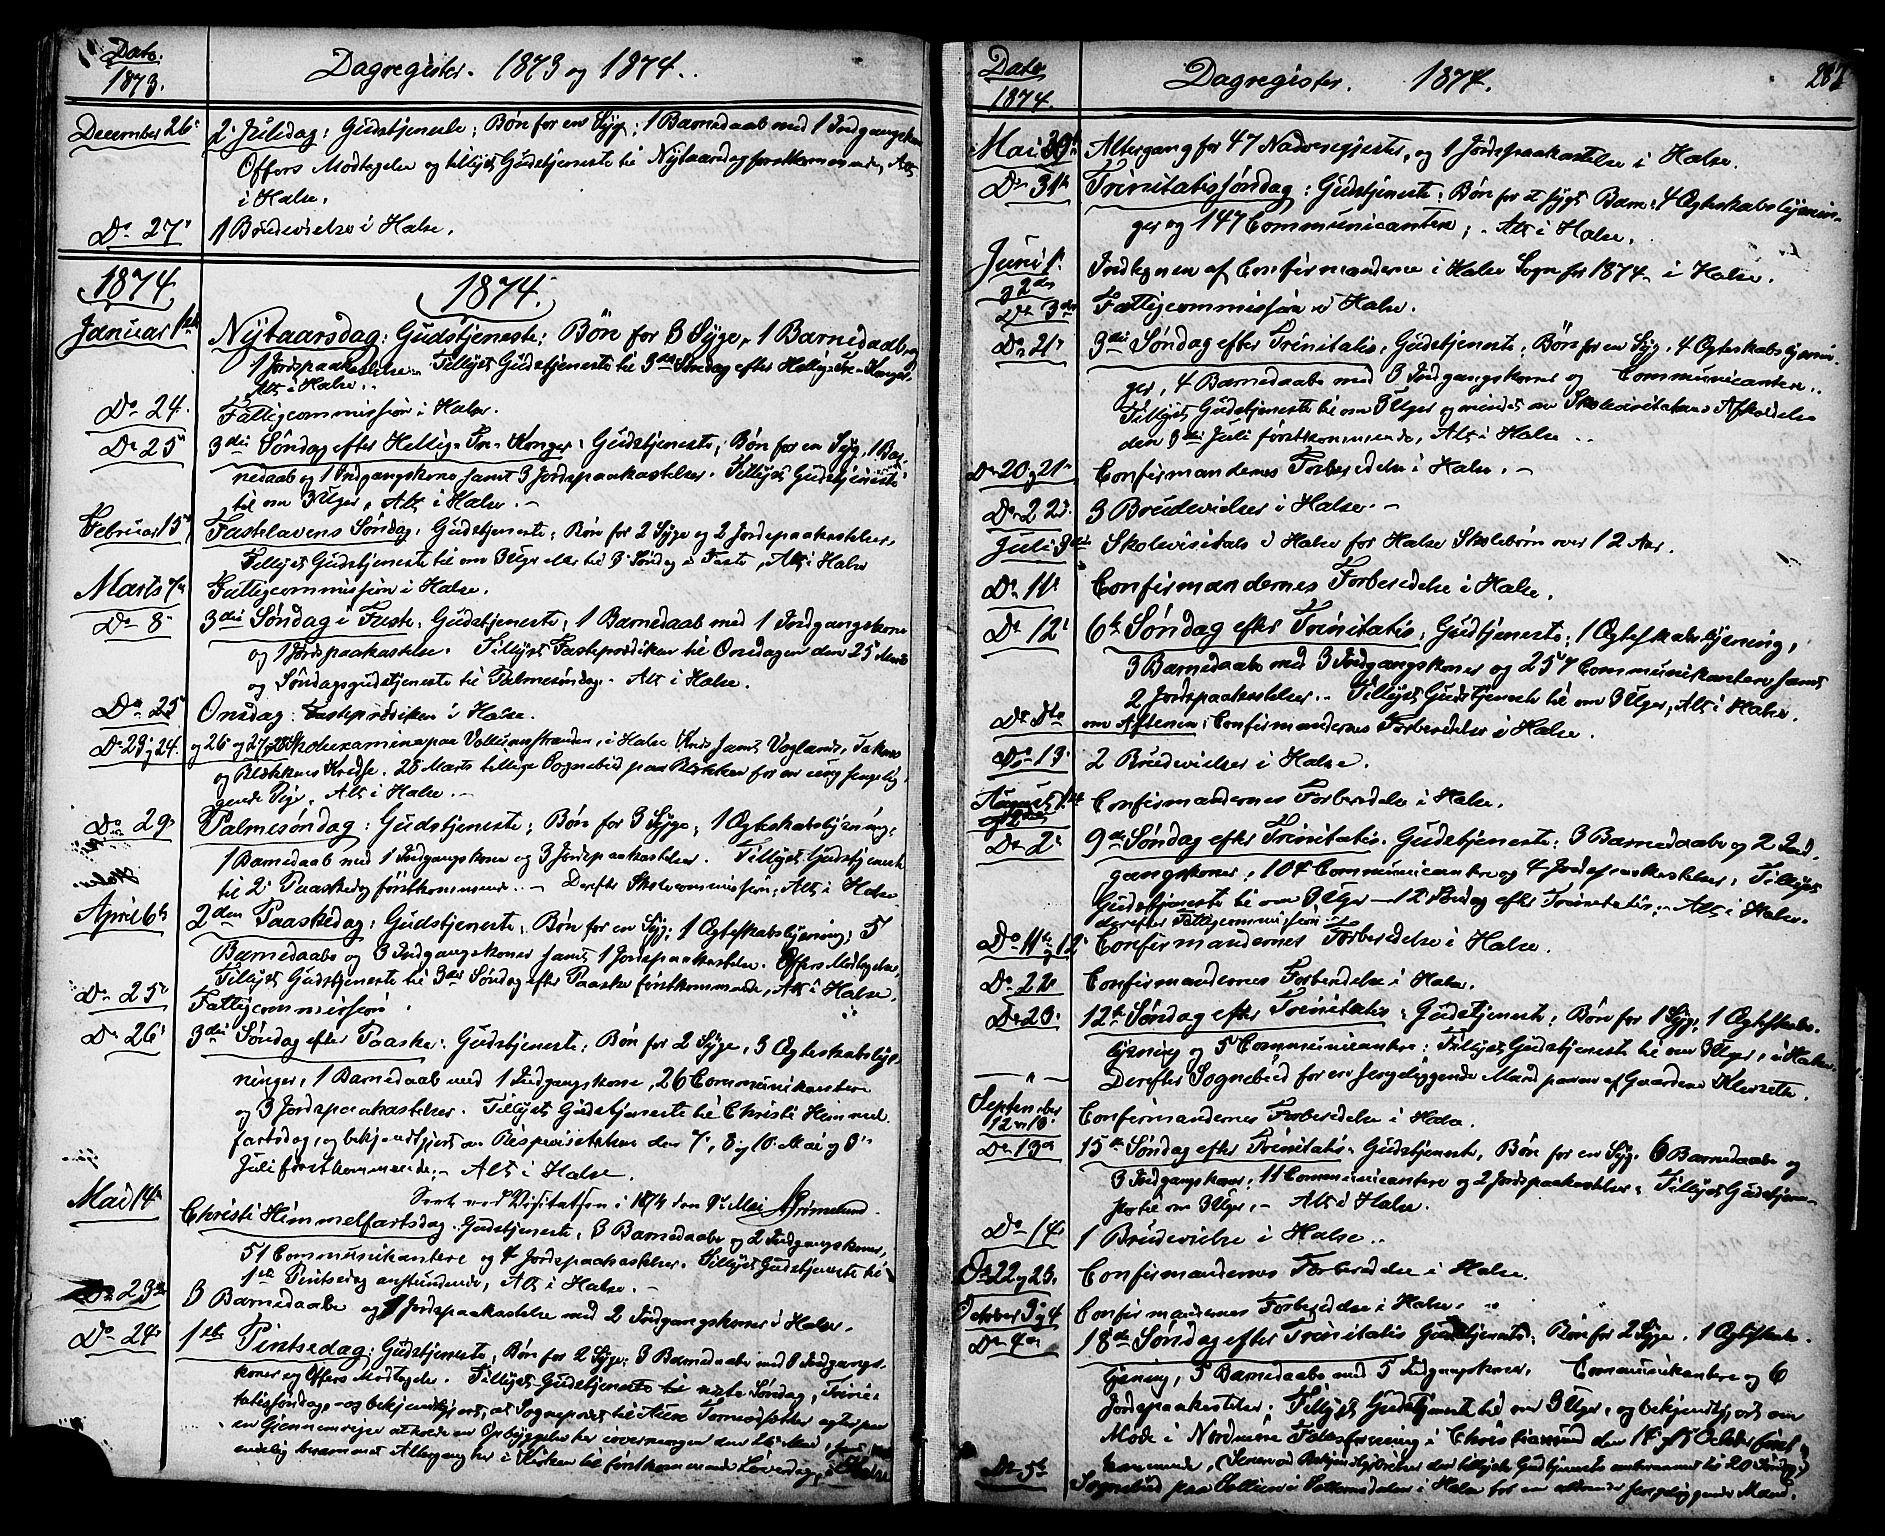 Dato.
1873.
Dagregister. 1873 og 1874.
December 26' 2' Juledag; Gudstjeneste; Bøn for en Syg; 1 Barnedaab med 1 Indgangskone
Offers Modtagelse og tillyst Gudstjeneste til Nytaarsdag førstkommende, Alt
i Halse.
Do 27' 1 Brudevielse i Halse.
1874. 1874.
Januar 1ste Nytaarsdag; Gudstjeneste; Bøn for 3 Syge, 1 Barnedaab og
1 Jordspaakastelse. Tillyst Gudstjeneste til 3die Søndag efter Hellig-Tre-Konger,
Alt i Halse.
Do 24. Fattigcommission i Halse.
Do 25' 3die Søndag efter Hellig-Tre-Konger; Gudstjeneste; Bøn for en Syg, 1 Bar-
nedaab og 1 Indgangskone samt 3 Jordspaakastelser. Tillyst Gudstjeneste
til om 3 Uger, Alt i Halse.
Februar 15' Fastelavens Søndag; Gudstjeneste; Bøn for 2 Syge og 2 Jordspaakastelser,
Tillyst Gudstjeneste til om 3 Uger eller til 3' Søndag i Faste, Alt i Halse
Marts 7' Fattigcommission i Halse.
Do 8' 3die Søndag i Faste; Gudstjeneste; 1 Barnedaab med 1 Indgangskone
og 1 Jordspaakastelse. Tillyst Fasteprædiken til Onsdagen den 25' Marts
og Søndagsgudstjeneste til Palmesøndag. Alt i Halse.
Do 25' Onsdag: Fasteprædiken i Halse.
Do 23 og 24. og 26' og 27' og 28' Skoleexamina paa Valsømstranden, i Halse Kreds samt Voglands,
og Blekkens Kredse. 28 Marts tillige Sognebud paa Blekken for en ung sengelig-
gende Pige. Alt i Halse.
Do 29' Palmesøndag; Gudstjeneste; Bøn for 3 Syge; 1 Ægteskabslysning;
1 Barnedaab med 1 Indgangskone og 3 Jordspaakastelser. Tillyst Gudstjeneste
til 2' Paaskedag førstkommende. Derefter Skolecommission, Alt i Halse
April 6te 2den Paaskedag; Gudstjeneste; Bøn for en Syg; 1 Ægteskabslysning; 5
Barnedaabe og 3 Indgangskoner samt 1 Jordspaakastelse. Offers Modtagelse,
Tillyst Gudstjeneste til 3die Søndag efter Paaske førstkommende, Alt i Halse,
Do 25' Fattigcommission.
Do 26' 3die Søndag efter Paaske; Gudstjeneste; Bøn for 2 Syge, 3 Ægteskabslys-
ninger, 1 Barnedaab med 1 Indgangskone, 26 Communikantere
og 3 Jordspaakastelser. Tillyst Gudstjeneste til Christi Himmel-
fartsdag, og bekjendtgjort om Bispevisitatsen den 7', 8' og 10' Mai og 3'
Juli førstkommende; Alt i Halse.
Seet ved Visitatsen i 1874 den 9de Mai
Mai 14de Christi Himmelfartsdag. Gudstjeneste, 3 Barnedaabe og 2 Indgangskoner,
51 Communikantere og 4 Jordspaakastelser. Tillyst Gudstjeneste til
1ste Pintsedag anstundende, Alt i Halse.
Do 23de 3 Barnedaabe og 1 Jordspaakastelse med 2 Indgangskoner i Halse.
Do 24' 1ste Pintsedag; Gudstjeneste, Bøn for 2 Syge; 3 Barnedaabe med 3 Indgangs-
koner og Offers Modtagelse. Tillyst Gudstjeneste til næste Søndag, Trini-
tatissøndag, og bekjendtgjort, at Sognepræst til
en Gjennemreise
endelig berammet Altergang her i Kirken til førstkommende Løverdag, i Halse
Dato
1874.
Dagregister. 1874. 287
Mai 30te Altergang for 47 Nadvergjester, og 1 Jordspaakastelse i Halse.
Do 31te Trinitatissøndag; Gudstjeneste; Bøn for et sygt Barn; 4 Ægteskabslysnin-
ger og 147 Communicantere; Alt i Halse.
Juni 1' Indtegnen af Confirmanderne i Halse Sogn for 1874 i Halse.
og 2den
Do 3die Fattigcommission i Halse.
Do 21' 3die Søndag efter Trinitatis; Gudstjeneste; Bøn for en Syg, 4 Ægteskabslysnin-
ger, 4 Barnedaabe med 3 Indgangskoner og Communicantere.
Tillyst Gudstjeneste til om 3 Uger og mindet om Skolevisitatsens Afholdelse
den 3die Juli førstkommende, Alt i Halse.
Do 20 og 21' Confirmandernes Forberedelse i Halse.
Do 22' 3 Brudevielser i Halse.
Juli 3die Skolevisitats i Halse for Halse Skolebørn over 12 Aar.
Do 11' Confirmandernes Forberedelse i Halse.
Do 12' 6te Søndag efter Trinitatis; Gudstjeneste; 1 Ægteskabslysning,
3 Barnedaabe med 3 Indgangskoner og 257 Communikantere samt
2 Jordspaakastelser. Tillyst Gudstjeneste til om 3 Uger, Alt i Halse.
Do Dto om Aftenen; Confirmandernes Forberedelse i Halse.
Do 13' 2 Brudevielser i Halse.
August 1ste Confirmandernes Forberedelse i Halse.
og 2den
Do 2' 9de Søndag efter Trinitatis. Gudstjeneste; 3 Barnedaabe og 2 Ind-
gangskoner, 104 Communicantere og 4 Jordspaakastelser; Tillyst
Gudstjeneste til om 3 Uger 12' Søndag efter Trinitatis; Alt i Halse.
derefter Fattigcommission
Do 11te og 12' Confirmandernes Forberedelse i Halse.
Do 22' Confirmandernes Forberedelse i Halse.
Do 23' 12te Søndag efter Trinitatis; Gudstjeneste; Bøn for 1 Syg; 1 Ægteskabs-
lysning og 5 Communicantere; Tillyst Gudstjeneste til om 3 Uger, i Halse.
" Derefter Sognebud for en sengeliggende Mand paa en af Gaardene
September
12' og 13' Confirmandernes Forberedelse i Halse.
Do 13de 15de Søndag efter Trinitatis; Gudstjeneste, Bøn for en Syg. 6 Barnedaabe og
3 Indgangskoner, 11 Communicantere og 2 Jordspaakastelser; Tillyst Gudstjene-
ste til om 3 Uger, Alt i Halse.
Do 14' 1 Brudevielse i Halse.
Do 22 og 23. Confirmandernes Forberedelse i Halse.
October 3 og 4 Confirmandernes Forberedelse i Halse.
Do 4de 18de Søndag efter Trinitatis Gudstjeneste; Bøn for 2 Syge. 1 Ægteskabs-
lysning, 5 Barnedaabe med 5 Indgangskoner, Communikantere og 6
Jordspaakastelser; Tillyst Gudstjeneste til om 3 Uger, og bekjendtgjort om
Møde i Nordmøre i Christiansund den 14' og 15' October først-
kommende,
Do 5te Sognebud paa i Halse for en sengeliggende Mand.